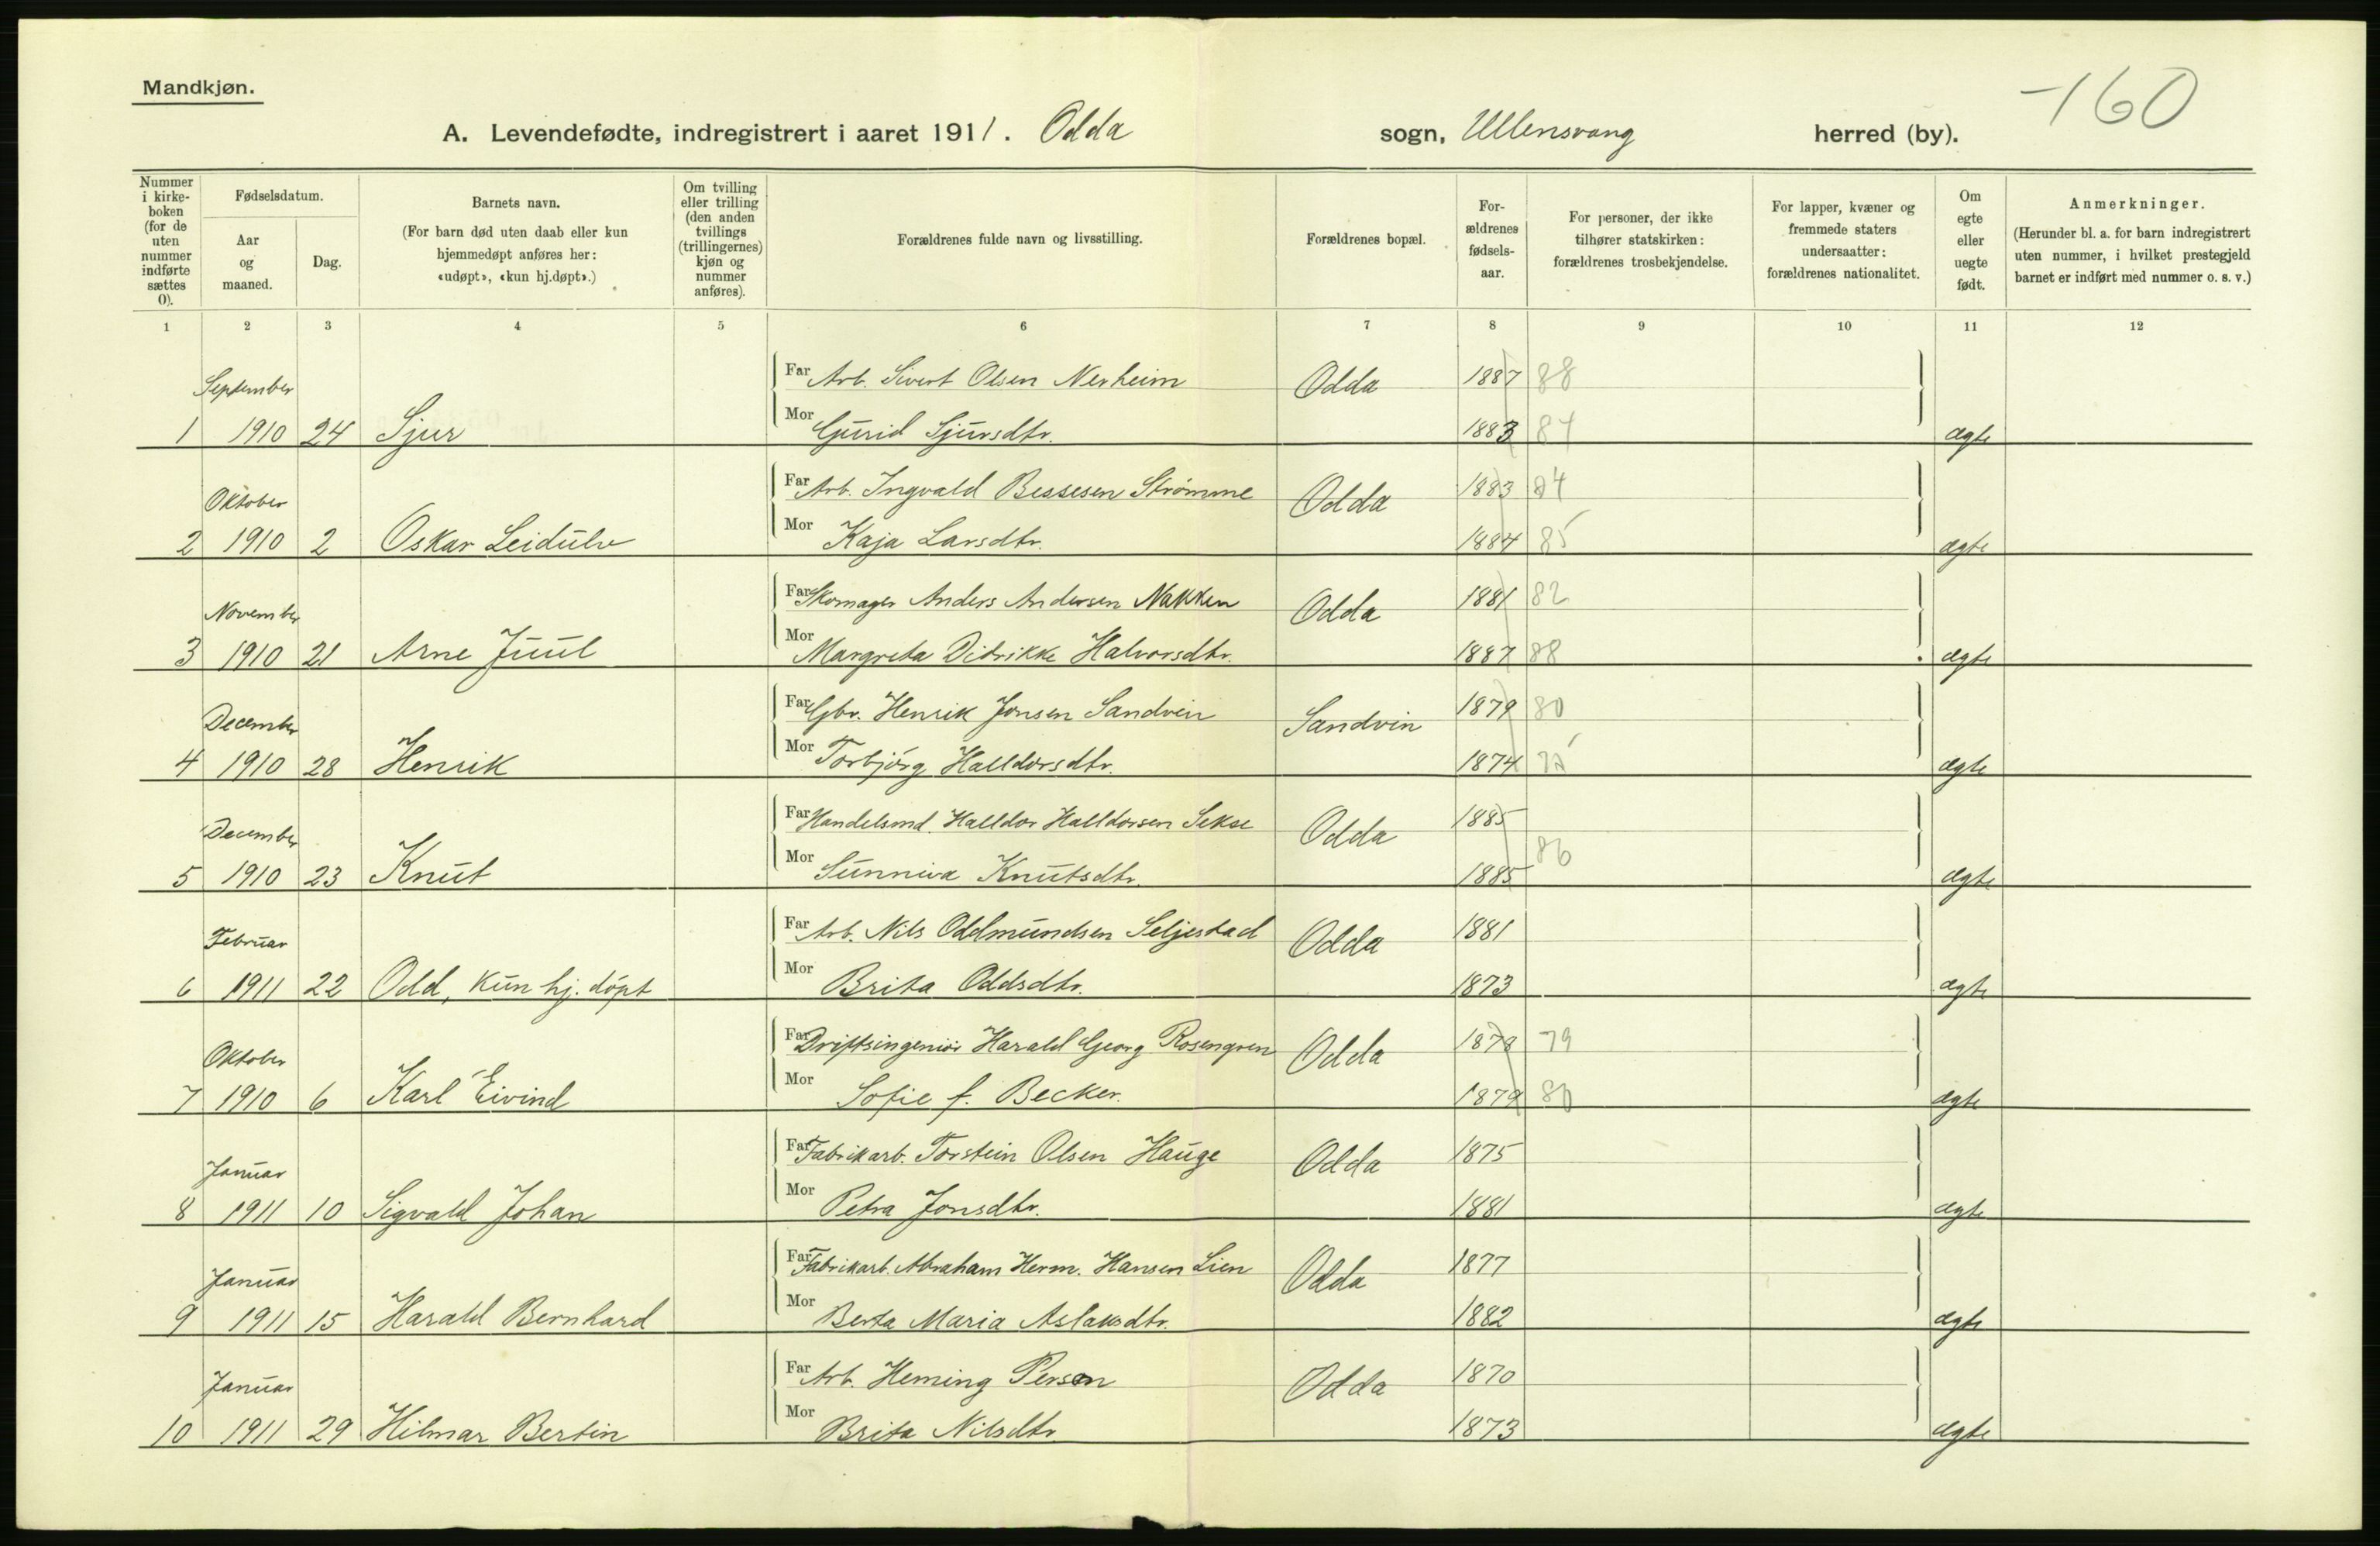 Mandkjøn.
-160
A. Levendefødte, indregistrert i aaret 1911. Odda sogn, Ullensvang herred (by).
Nummer i kirke-boken (for de uten nummer indførte sættes 0).
Fødselsdatum.
Aar og maaned.
Dag.
Barnets navn.
(For barn død uten daab eller kun hjemmedøpt anføres her: «udøpt», «kun hj.døpt».)
Om tvilling eller trilling (den anden tvillings (trillingernes) kjøn og nummer anføres).
Forældrenes fulde navn og livsstilling.
Forældrenes bopæl.
For-ældrenes fødsels-aar.
For personer, der ikke tilhører statskirken: forældrenes trosbekjendelse.
For lapper, kvæner og fremmede staters undersaatter: forældrenes nationalitet.
Om egte eller uegte født.
Anmerkninger.
(Herunder bl. a. for barn indregistrert uten nummer, i hvilket prestegjeld barnet er indført med nummer o. s. v.)
1 2 3 4 5 6 7 8 9 10 11 12
September Far Arb. Sivert Olsen Nerheim Odda 1887 88
1 1910 24 Sjur Mor Gurid Sjursdtr. 1883 84 ægte
Oktober Far Arb. Ingvald Bessesen Strømme Odda 1883 84
2 1910 2 Oskar Leidulv Mor Kaja Larsdtr. 1884 85 ægte
November Far Skomager Anders Andersen Nakken Odda 1881 82
3 1910 21 Arne Juul Mor Margreta Didrikke Halvorsdtr. 1887 88 ægte
December Far Gbr. Henrik Jonsen Sandvin Sandvin 1879 80
4 1910 28 Henrik Mor Torbjørg Halldorsdtr. 1874 ægte
December Far Handelsmd. Halldor Halldorsen Sekse Odda 1885
5 1910 23 Knut Mor Sunniva Knutsdtr. 1885 86 ægte
Februar Far Arb. Nils Oddmundsen Seljestad Odda 1881
6 1911 22 Odd, kun hj. døpt Mor Brita Oddsdtr. 1873 ægte
Oktober Far Driftsingeniør Harald Georg Rosengren Odda 1878 79
7 1910 6 Karl Eivind Mor Sofie f. Becker. 1879 80 ægte
Januar Far Fabrikarb. Torstein Olsen Hauge Odda 1875
8 1911 10 Sigvald Johan Mor Petra Jonsdtr. 1881 ægte
Januar Far Fabrikarb. Abraham Herm. Hansen Lien Odda 1877
9 1911 15 Harald Bernhard Mor Berta Maria Aslaksdtr. 1882 ægte
Januar Far Arb. Heming Person Odda 1870
10 1911 29 Hilmar Bertin Mor Brita Nilsdtr. 1873 ægte